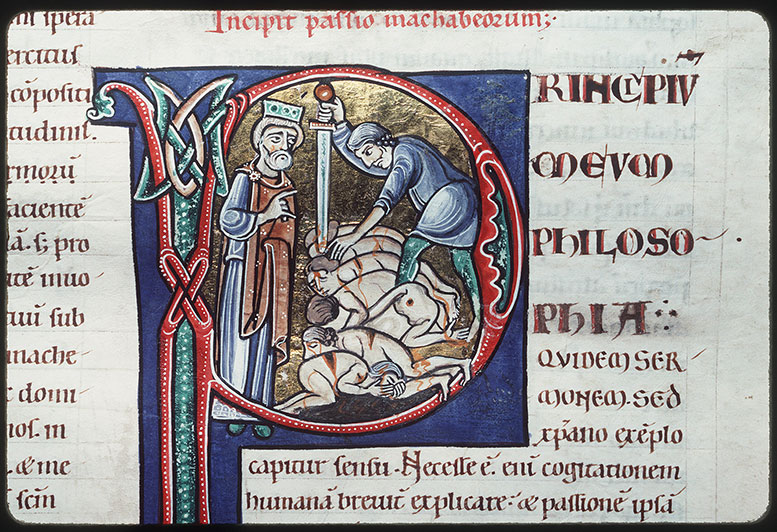 ni ipera
ercitus
cōpositi
citudinis.
armorū
faciente
ā. ⁊ pro
itatē inuo
tiui sub
mache
c domi
nos. in
. & me
scīn
Incipit passio machabeorum;·
PRINCIPIV
MEVM
PHILOSO
PHIA
QVIDEM SER
MONEM. SED
xp̄ano exēplo
capitur sensu. Necesse ē. eni cogitationem
humanā breuit explicare. & passionē ipsā